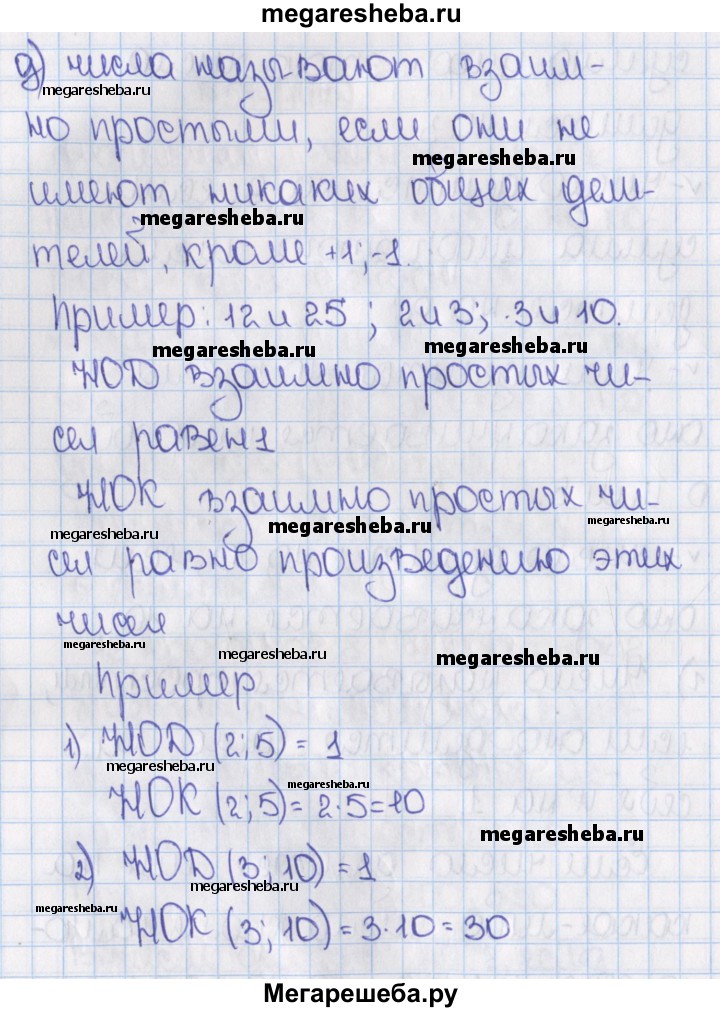 megaresheba.ru
д) числа называют взаим-
megaresheba.ru
но простыми, если они не
megaresheba.ru
имеют никаких общих дели-
megaresheba.ru
телей, кроме +1; -1.
Пример: 12 и 25 ; 2 и 3; 3 и 10.
megaresheba.ru megaresheba.ru
НОD взаимно простых чи-
сел равен 1
НОК взаимно простых чи-
megaresheba.ru megaresheba.ru megaresheba.ru
сел равно произведению этих
чисел
megaresheba.ru megaresheba.ru megaresheba.ru
Пример
1) НОD (2; 5) = 1
megaresheba.ru megaresheba.ru
НОК (2; 5) = 2·5=10
megaresheba.ru
2) НОD (3; 10) = 1
megaresheba.ru
megaresheba.ru
НОК (3; 10) = 3·10 = 30
Мегарешеба.ру